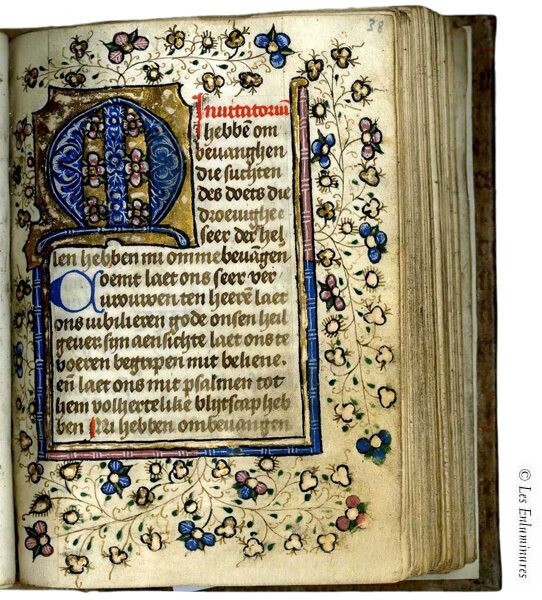 38
Inuitatoriū
MI hebbē om
beuanghen
die suchten
des doets die
droeuighe e
seer der hel
len hebben mi omme beuāgen
Coemt laet ons seer ver
urouwen ten heerē laet
ons iubilieren gode onsen heil
geuer syn aensichte laet ons te
voeren begripen mit beliene.
eñ laet ons mit psalmen tot
hem volhertelike blijtscap heb
ben Mi hebben ombeuangen
© Les Enluminures